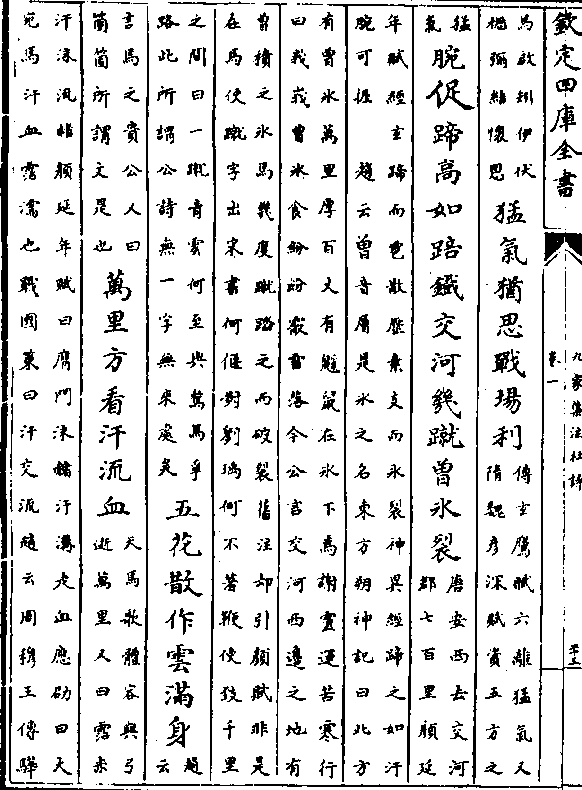 欽定四庫全書
九家集注杜詩
卷一
伊伏
懷思
猛氣猶思戰場利
傅玄鷹賦六離猛氣又
隋魏彥深賦資五方之
猛
氣
腕促蹄高如踣鐵交河幾蹴曾氷裂
唐安西去交河
郡七百里顔延
年賦經玄蹄而雹散歴素支而氷裂神異經蹄之如汗
腕可握 趙云曾音層是氷之名東方朔神記曰北方
有曾氷萬里厚百丈有鼷鼠在氷下焉謝靈運苦寒行
曰峩峩曾氷食紛紛霰雪落今公言交河西邊之地有
曾積之氷馬幾度蹴踏之而破裂舊注却引顔賦非是
在馬使蹴字出宋書何偃對劉瑀何不著鞭使致千里
之間曰一蹴青雲何至與駑馬爭
路此所謂公詩無一字無來處矣
五花散作雲滿身
趙
云
言馬之貴公人曰
箇箇所謂文是也
萬里方看汗流血
天馬歌體容與弓
逝萬里又曰霑赤
汗沫流赭顔延年賦曰膺門沫赭汗溝走血應劭曰天
宛馬汗血霑濡也戰國䇿曰汗交流趙云周穆王傳驊